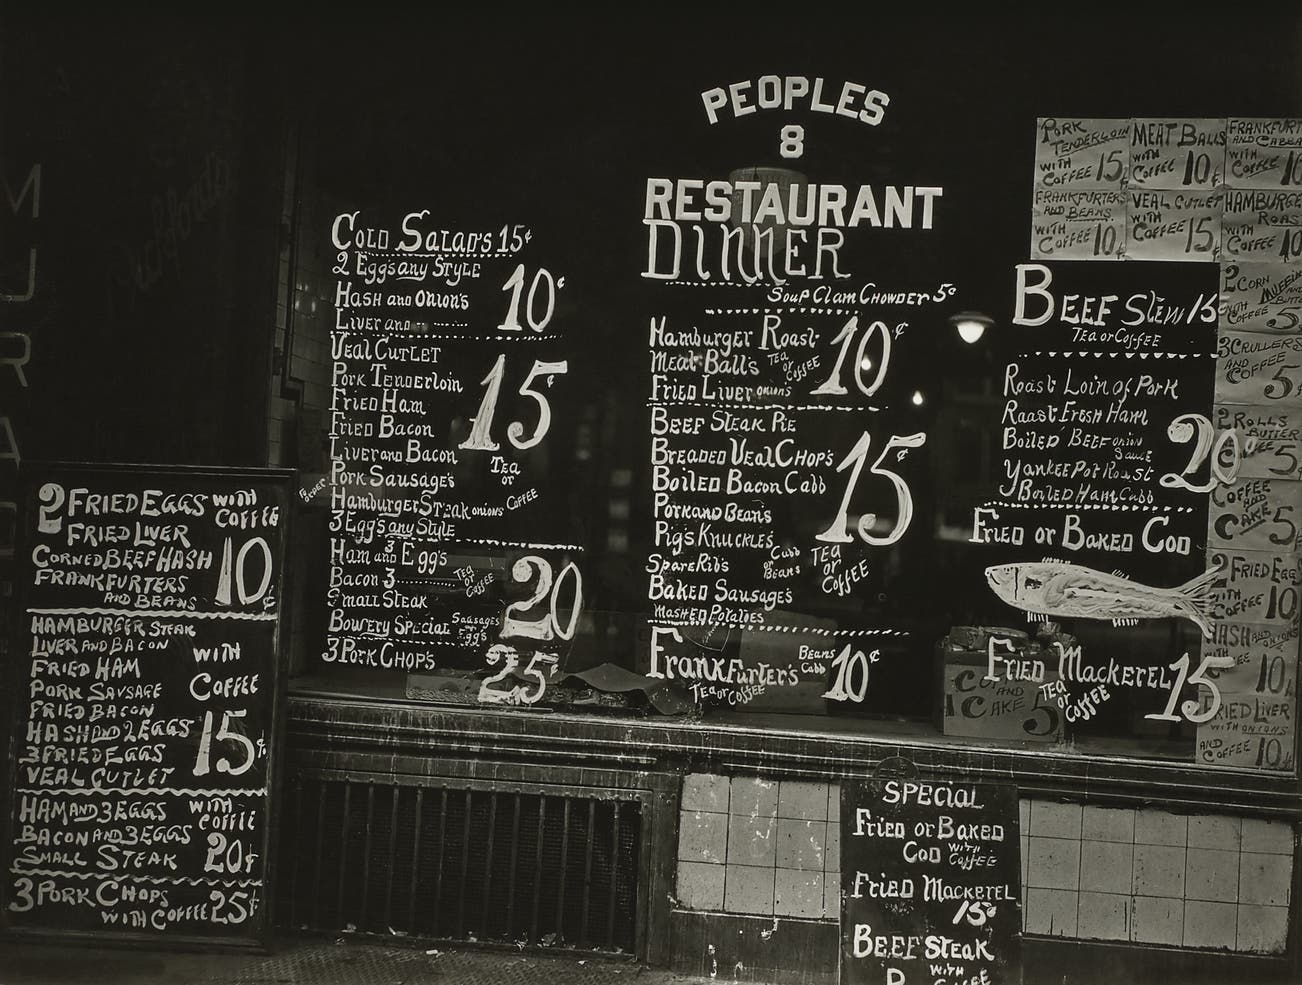 PEOPLES
8
RESTAURANT
DINNER
Soup Clam Chowder 5¢
Hamburger Roast
Meat-Ball's Tea or Coffee 10¢
Fried Liver onion's
Beef Steak Pie
Breaded Veal Chop's
Boiled Bacon Cabb 15¢
Pork and Bean's
Pig's Knuckle's Cabb or Beans Tea or Coffee
Spare Rib's
Baked Sausage's
Mashed Potatoes
Frankfurter's Beans Cabb 10¢
Tea or Coffee
Cold Salad's 15¢
2 Eggs any Style
Hash and Onion's 10¢
Liver and
Veal Cutlet
Pork Tenderloin
Fried Ham 15¢
Fried Bacon
Liver and Bacon
Pork Sausage's Tea or Coffee
Hamburger Steak onions
3 Egg's any Style
Ham and 3 Egg's
Bacon 3 Tea or Coffee
Small Steak 20¢
Bowery Special Sausages Egg's
3 Pork Chop's 25¢
Beef Stew 15
Tea or Coffee
Roast Loin of Pork
Roast Fresh Ham
Boiled Beef onion Sauce 20¢
Yankee Pot Roast
Boiled Ham Cabb
Fried or Baked Cod
Fried Mackerel 15
Tea or Coffee
PORK TENDERLOIN WITH COFFEE 15¢
MEAT BALLS WITH COFFEE 10¢
FRANKFURT AND CABBA WITH COFFEE 10
FRANKFURTERS AND BEANS WITH COFFEE 10¢
VEAL CUTLET WITH COFFEE 15¢
HAMBURGE ROAST WITH COFFEE 10
2 CORN MUFFINS WITH COFFEE 5
3 CRULLERS AND COFFEE 5¢
2 ROLLS BUTTER 5¢
COFFEE AND CAKE 5
2 FRIED EGG WITH COFFEE 10
HASH AND ONIONS 10¢
FRIED LIVER WITH ONIONS AND COFFEE 10¢
AND CAKE 5
2 FRIED EGGS WITH COFFEE
FRIED LIVER
CORNED BEEF HASH 10¢
FRANKFURTERS
AND BEANS
HAMBURGER STEAK
LIVER AND BACON WITH
FRIED HAM COFFEE
PORK SAUSAGE
FRIED BACON
HASH AND 2 EGGS 15¢
3 FRIED EGGS
VEAL CUTLET
HAM AND 3 EGGS WITH COFFEE
BACON AND 3 EGGS
SMALL STEAK 20¢
3 PORK CHOPS
WITH COFFEE 25¢
SPECIAL
Fried or Baked
Cod with Coffee
Fried Mackerel
15¢
BEEF STEAK
WITH